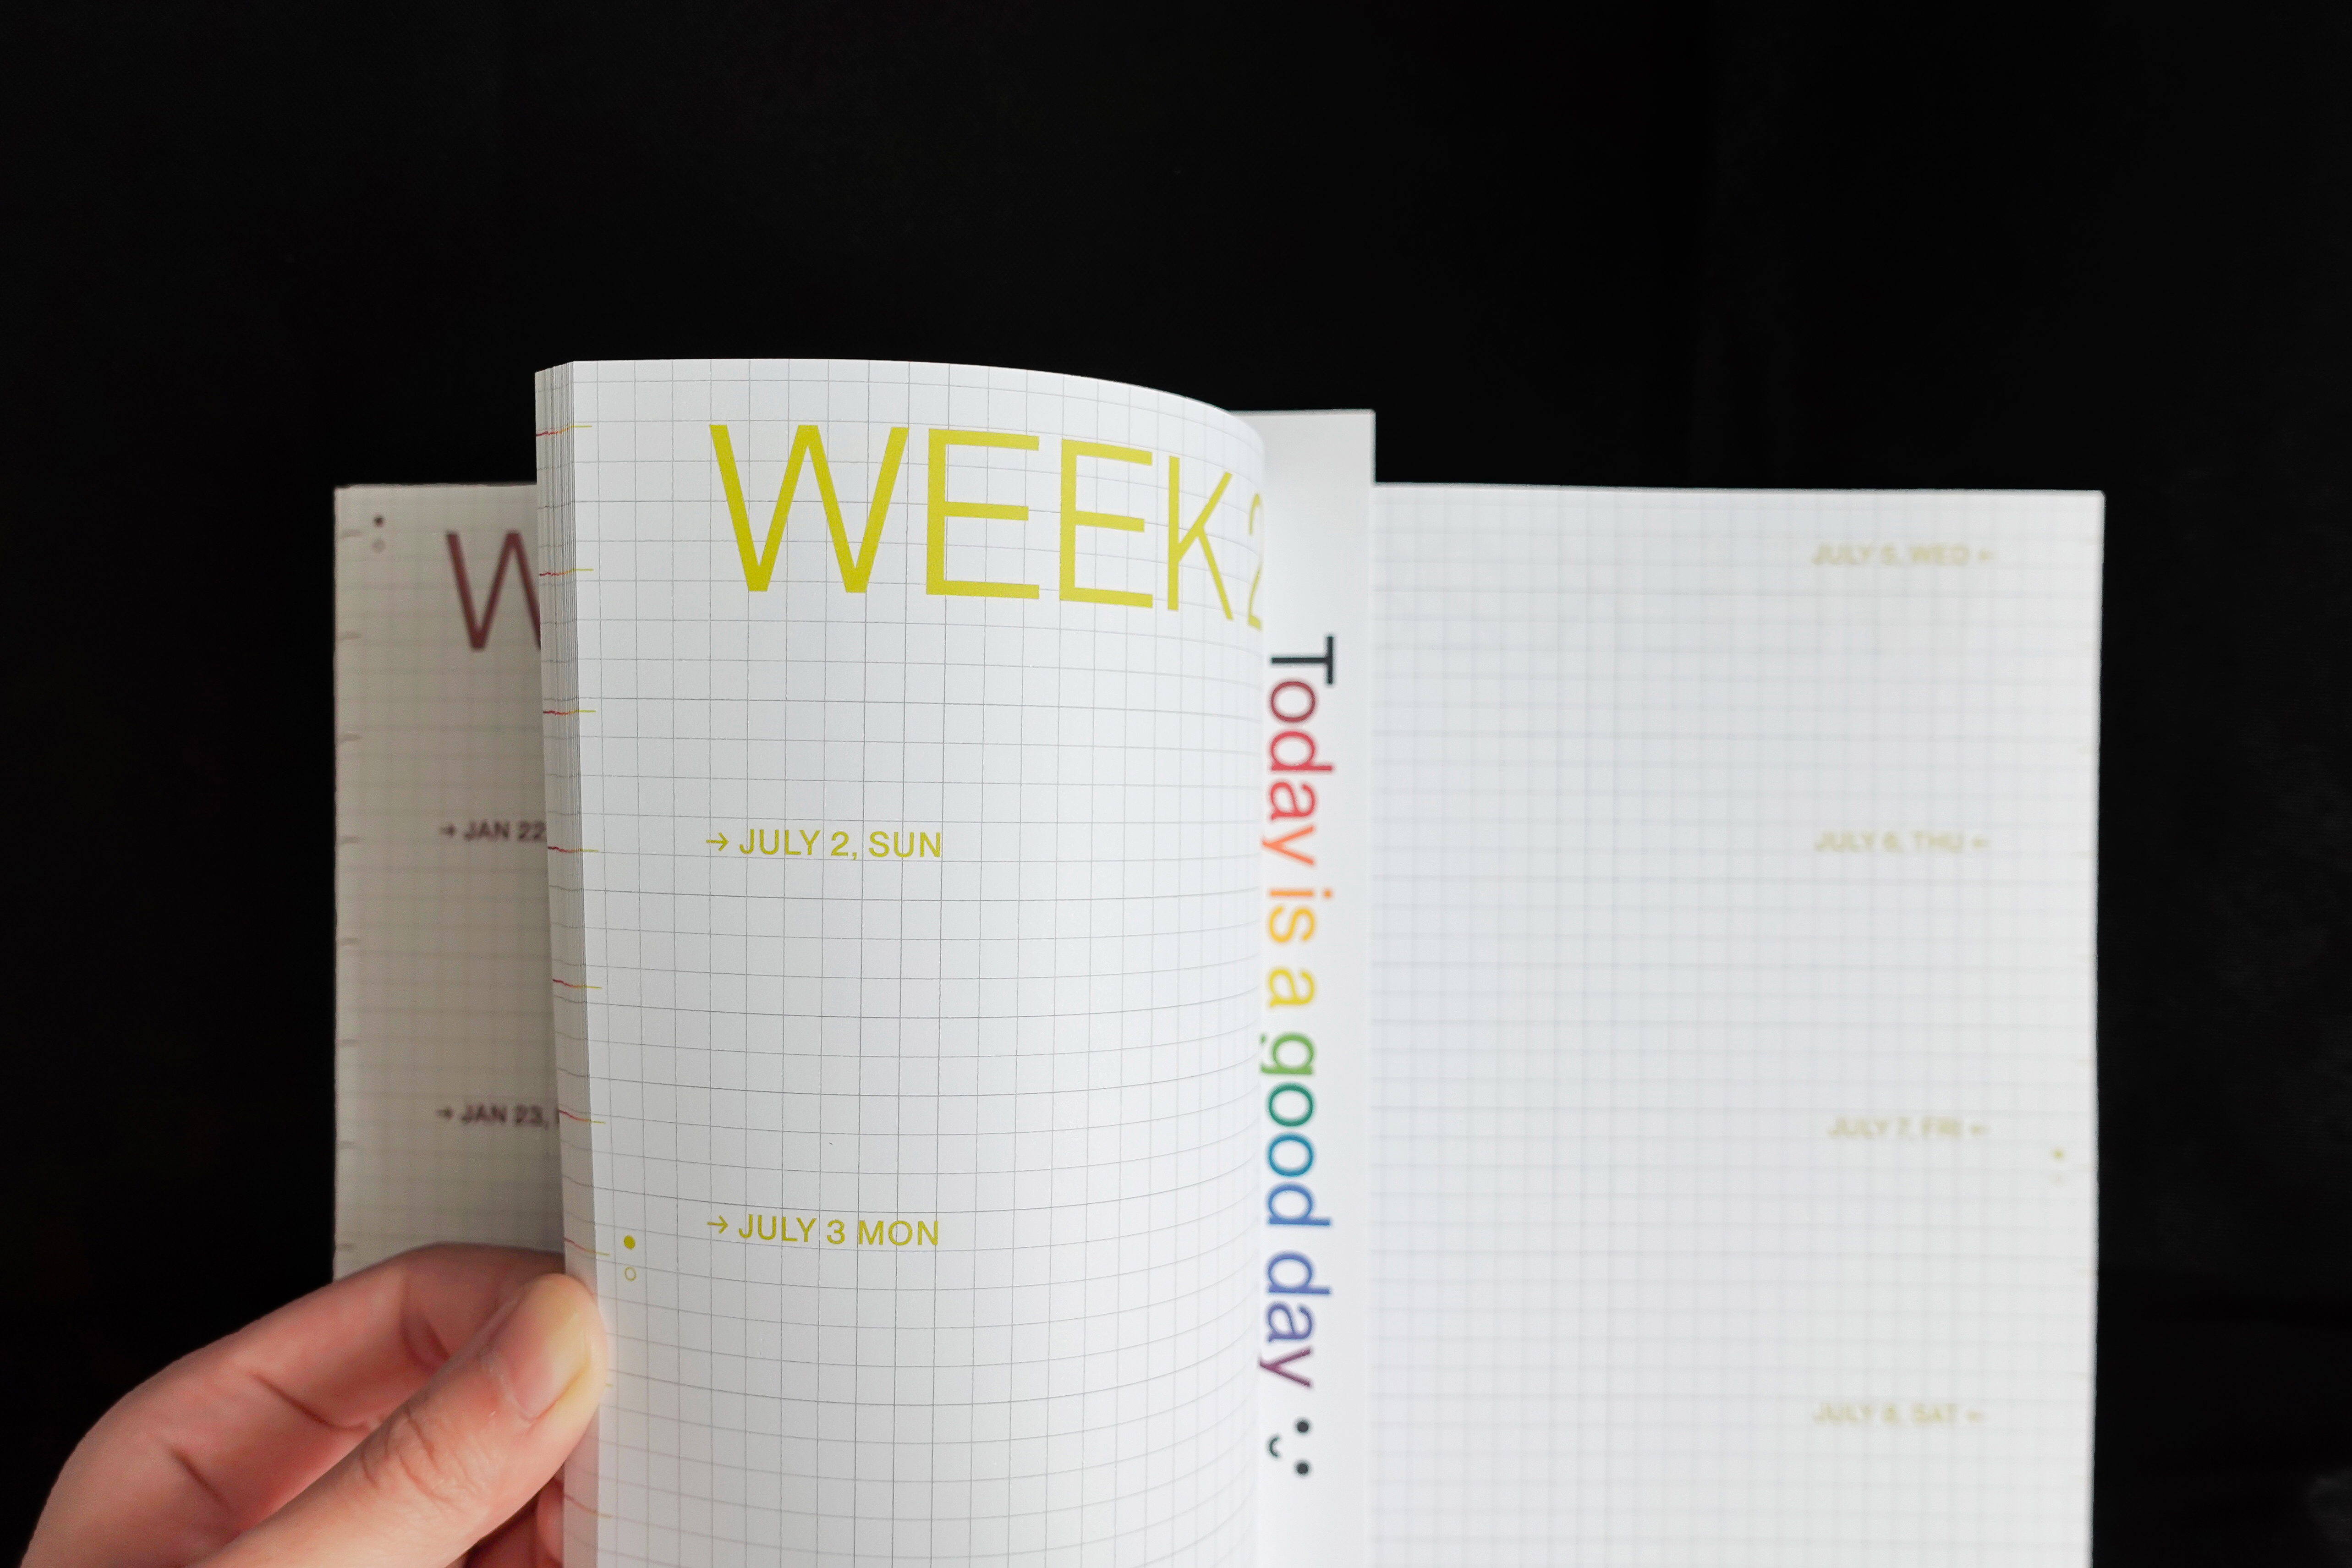 W
→ JAN 22
→ JAN 23,
WEEK 2
→ JULY 2, SUN
→ JULY 3 MON
Today is a good day
JULY 5, WED ←
JULY 6, THU ←
JULY 7, FRI ←
JULY 8, SAT ←